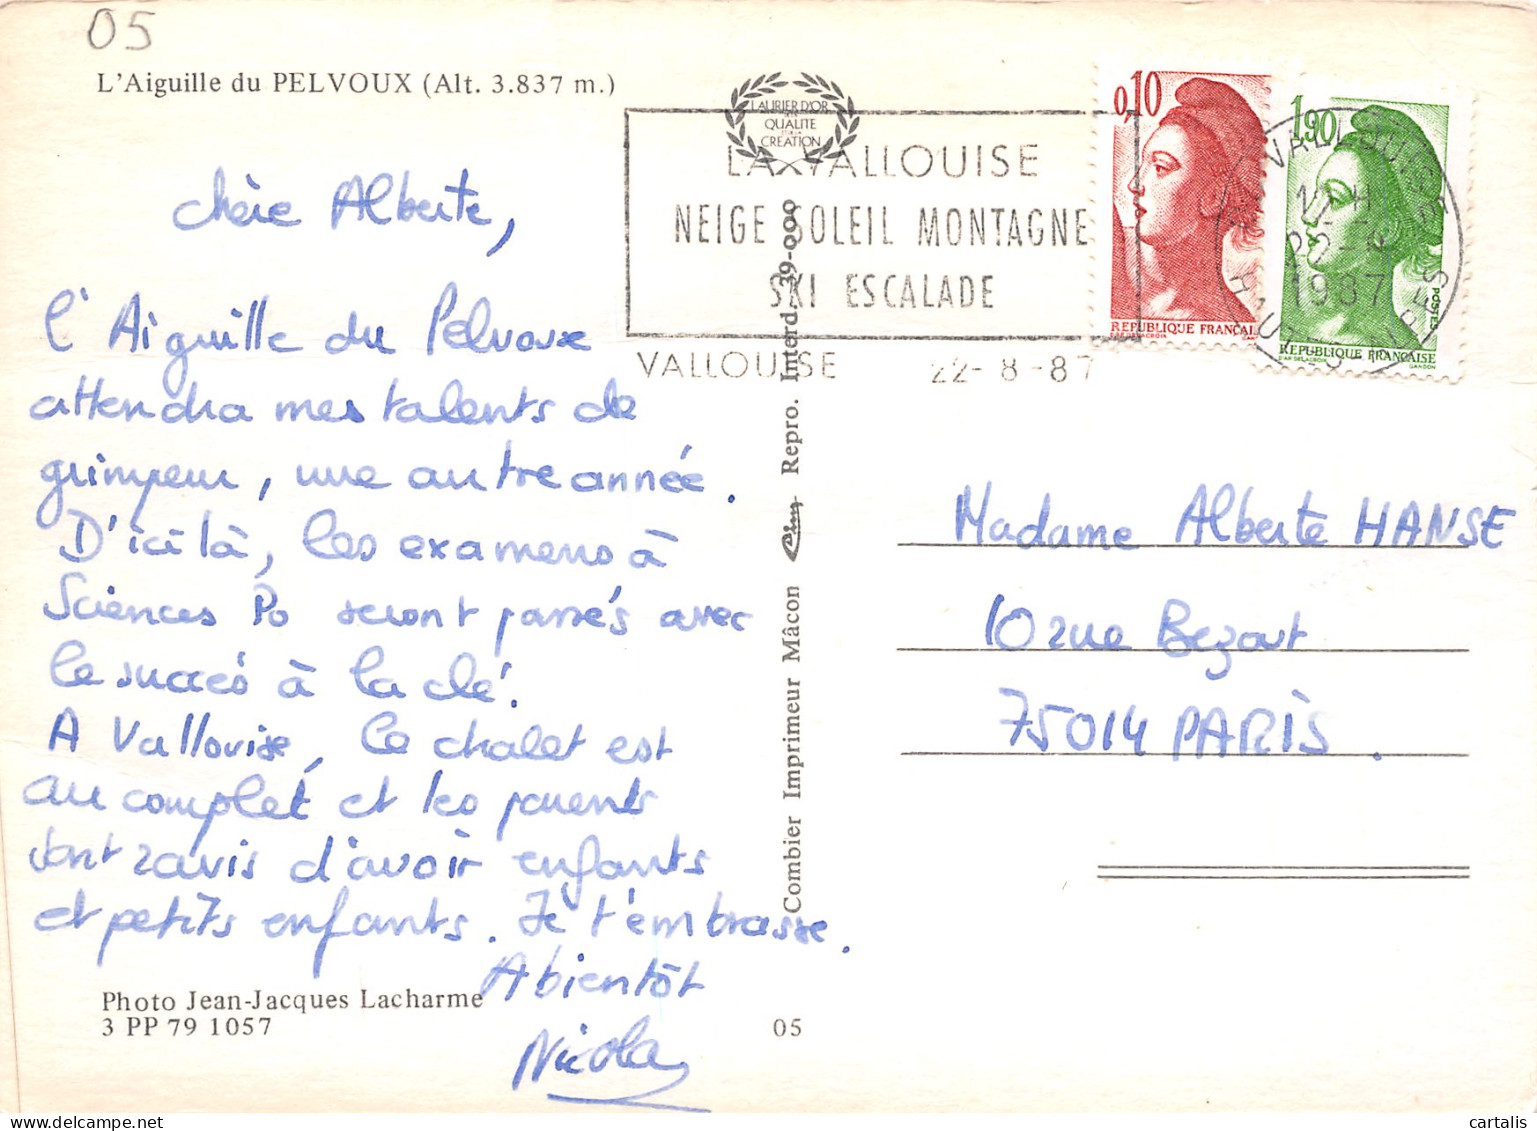 05
L'Aiguille du PELVOUX (Alt. 3.837 m.)
LAURIER D'OR
QUALITE
CREATION
LA VALLOUISE
NEIGE SOLEIL MONTAGNE
SKI ESCALADE
VALLOUISE 22-8-87
0,10
REPUBLIQUE FRANÇAI
1,90
POSTES
REPUBLIQUE FRANÇAISE
GANDON
VALLOUISE
1987
HAUTES ALPES
chère Alberte,
l'Aiguille du Pelvoux
attendra mes talents de
grimpeur, une autre année.
D'ici là, les examens à
Sciences Po seront passés avec
le succés à la clé.
A Vallouise, le chalet est
au complet et les parents
sont ravis d'avoir enfants
et petits enfants. Je t'embrasse.
A bientôt
Nicolas
Photo Jean-Jacques Lacharme
3 PP 79 1057
05
Combier Imprimeur Mâcon Cim Repro. Interd. 39-000
Madame Alberte HANSE
10 rue Bezout
75014 PARIS.
cartalis